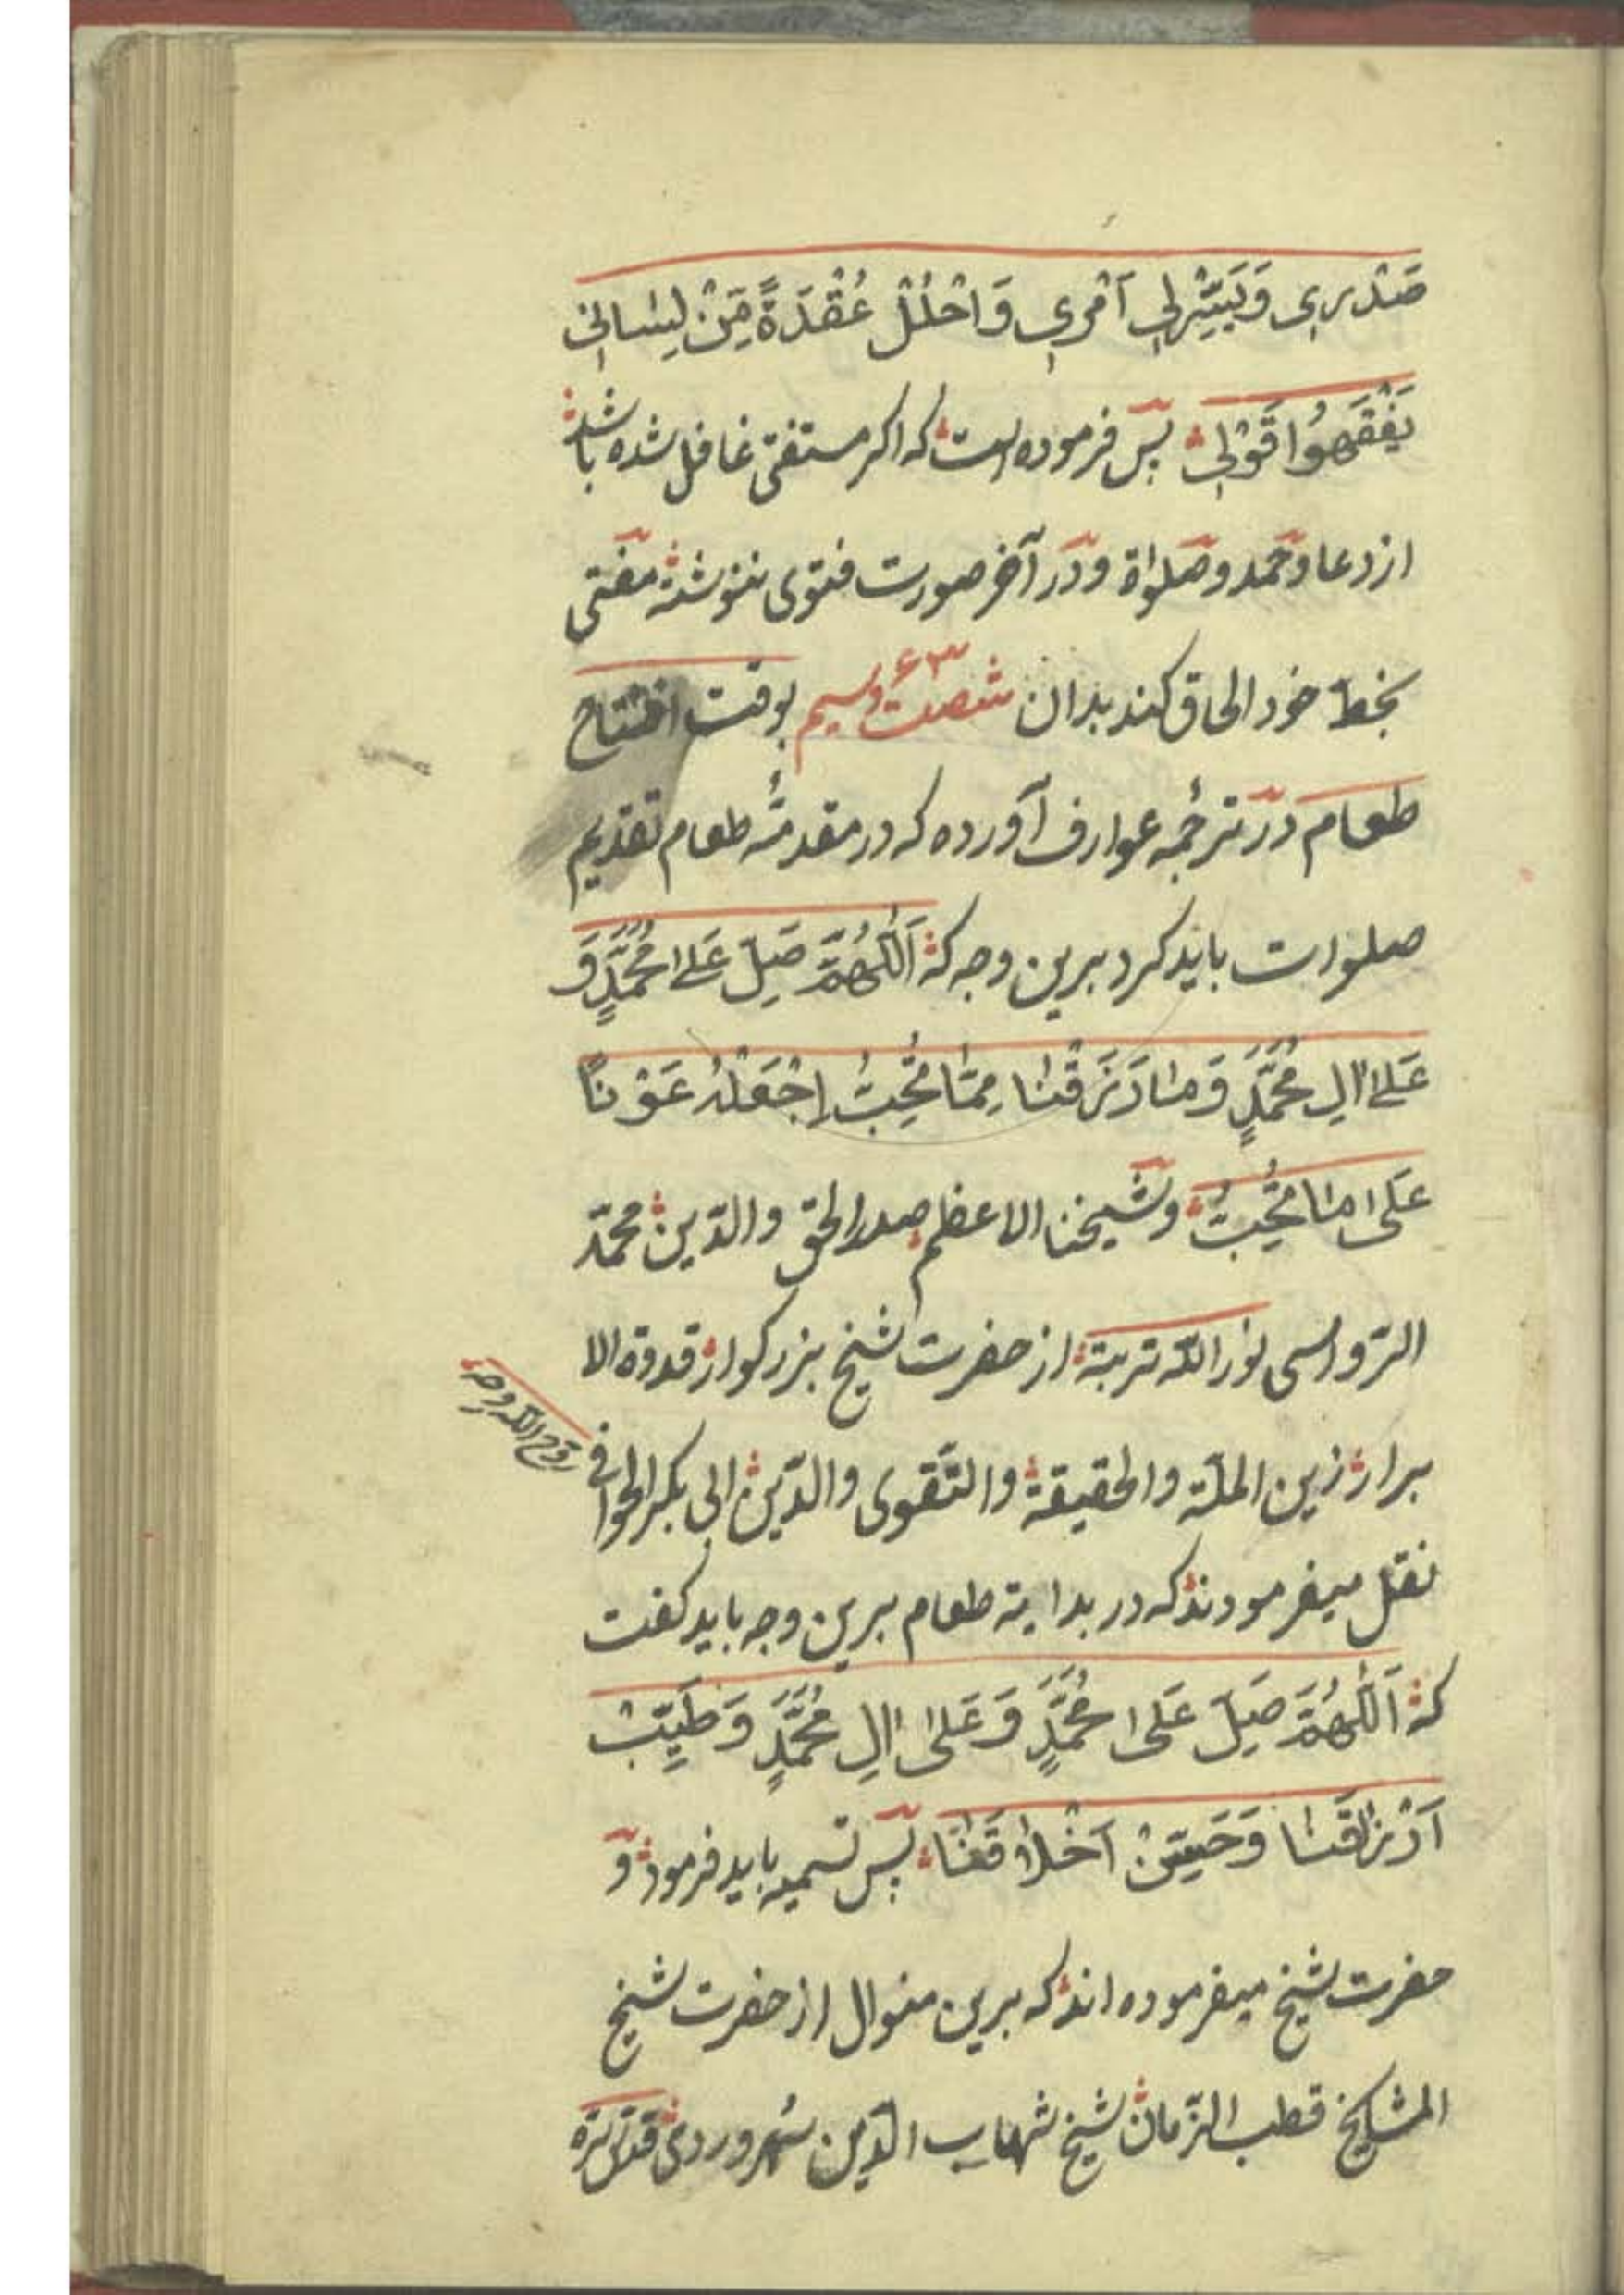 صَدْرِی وَیَسِّرْلِی اَمْرِی وَاحْلُلْ عُقْدَةً مِّنْ لِسَانِی
یَفْقَهُوا قَوْلِی پس فرموده است که اکر مستفتی غافل شده باشد
از دعا و حمد و صلواة و در آخر صورت فتوی ننوشته مفتی
بخط خود الحاق کند بدان شصت و سیم ۶۳ بوقت افتتاح
طعام در ترجمه عوارف آورده که در مقدمۀ طعام تقدیم
صلوات باید کرد برین وجه که اَللّٰهُمَّ صَلِّ عَلىٰ مُحَمَّدٍ وَ
عَلىٰ اٰلِ مُحَمَّدٍ وَمَا رَزَقْتَنَا مِمَّا تُحِبُّ اِجْعَلْهُ عَوْنًا
عَلىٰ مَا تُحِبُّ و شیخنا الاعظم صدر الحق والدّین محمّد
الرّواسی نور اللّه تربته از حضرت شیخ بزرکوار قدوة الا
برار زین الملّة والحقیقة والتّقوی والدّین ابی بکر الخوافی
روّح اللّه روحه
نقل میفرمودند که در بدایة طعام برین وجه باید کفت
که اَللّٰهُمَّ صَلِّ عَلىٰ مُحَمَّدٍ وَعَلىٰ اٰلِ مُحَمَّدٍ وَطَیِّبْ
اَرْزَاقَنَا وَحَسِّنْ اَخْلَاقَنَا پس تسمیه باید فرمود و
حضرت شیخ میفرموده اند که برین منوال از حضرت شیخ
المشایخ قطب الزّمان شیخ شهاب الدّین سُهروردی قدّس سرّه